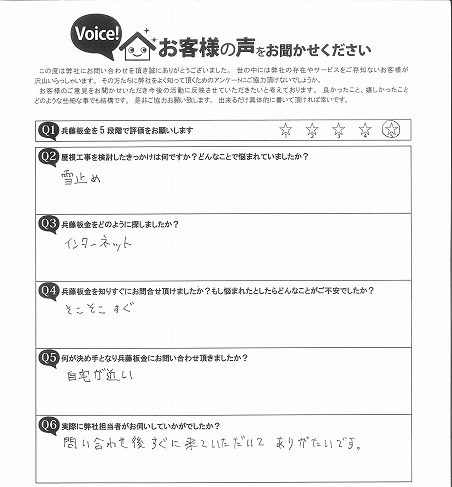 Voice!
お客様の声をお聞かせください
この度は弊社にお問い合わせを頂き誠にありがとうございました。 世の中には弊社の存在やサービスをご存知ないお客様が
沢山いらっしゃいます。 その方たちに弊社をよく知って頂くためのアンケートにご協力頂けないでしょうか。
お客様のご意見をお聞かせいただき今後の活動に反映させていただきたいと考えております。 良かったこと、嬉しかったこと
どのような些細な事でも結構です。 是非ご協力お願い致します。 出来るだけ具体的に書いて頂ければ幸いです。
Q1 兵藤板金を5段階で評価をお願いします
Q2 屋根工事を検討したきっかけは何ですか?どんなことで悩まれていましたか?
雪止め
Q3 兵藤板金をどのように探しましたか?
インターネット
Q4 兵藤板金を知りすぐにお問合せ頂けましたか?もし悩まれたとしたらどんなことがご不安でしたか?
そこそこすぐ
Q5 何が決め手となり兵藤板金にお問い合わせ頂きましたか?
自宅が近い
Q6 実際に弊社担当者がお伺いしていかがでしたか?
問い合わせ後すぐに来ていただいて ありがたいです。